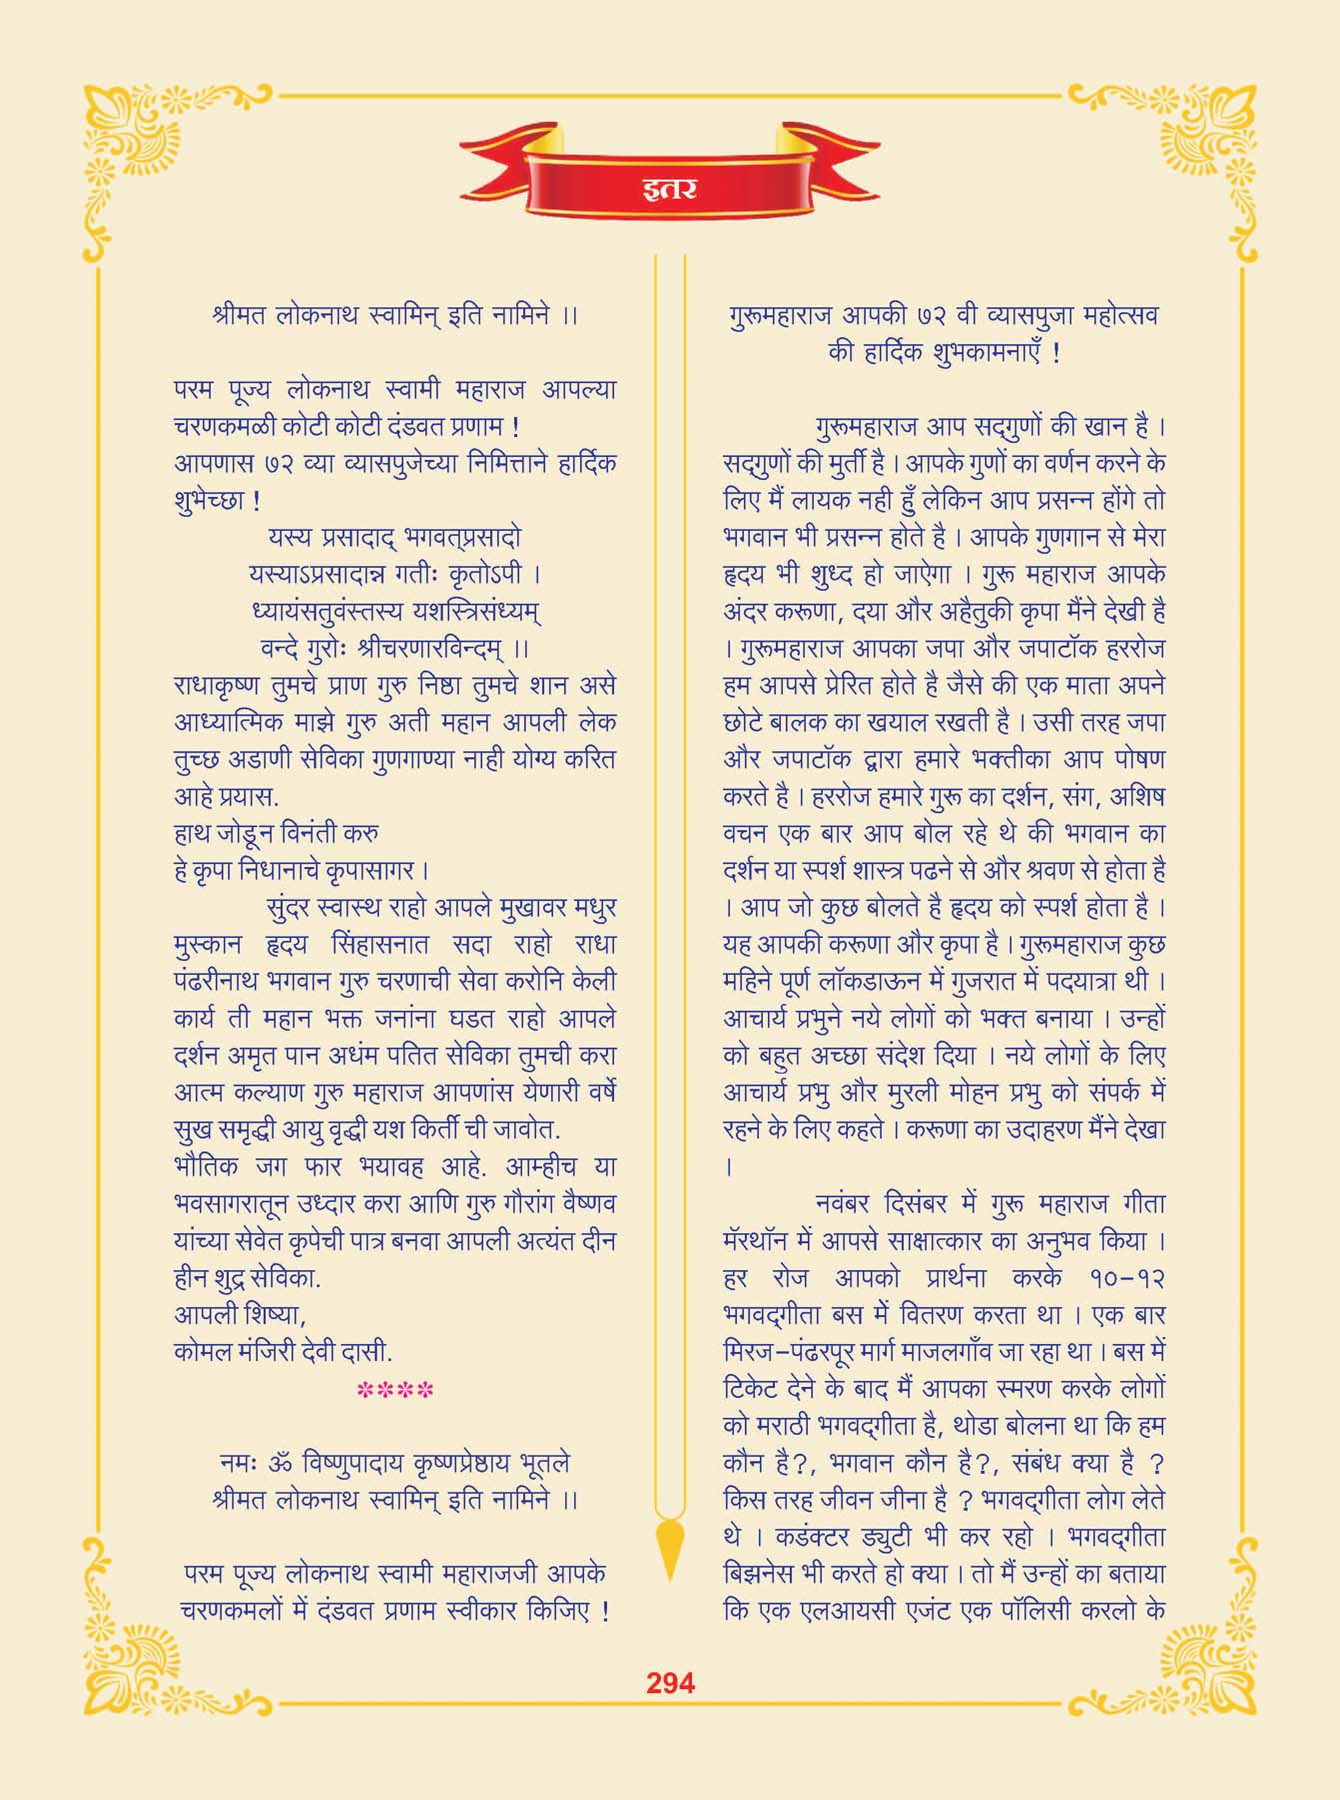 इतर
श्रीमत लोकनाथ स्वामिन् इति नामिने ।।
परम पूज्य लोकनाथ स्वामी महाराज आपल्या
चरणकमळी कोटी कोटी दंडवत प्रणाम !
आपणास ७२ व्या व्यासपुजेच्या निमित्ताने हार्दिक
शुभेच्छा !
यस्य प्रसादाद् भगवत्प्रसादो
यस्याऽप्रसादान्न गतीः कृतोऽपी ।
ध्यायंसतुवंस्तस्य यशस्त्रिसंध्यम्
वन्दे गुरोः श्रीचरणारविन्दम् ।।
राधाकृष्ण तुमचे प्राण गुरु निष्ठा तुमचे शान असे
आध्यात्मिक माझे गुरु अती महान आपली लेक
तुच्छ अडाणी सेविका गुणगाण्या नाही योग्य करित
आहे प्रयास.
हाथ जोडून विनंती करु
हे कृपा निधानाचे कृपासागर ।
सुंदर स्वास्थ राहो आपले मुखावर मधुर
मुस्कान हृदय सिंहासनात सदा राहो राधा
पंढरीनाथ भगवान गुरु चरणाची सेवा करोनि केली
कार्य ती महान भक्त जनांना घडत राहो आपले
दर्शन अमृत पान अधंम पतित सेविका तुमची करा
आत्म कल्याण गुरु महाराज आपणांस येणारी वर्षे
सुख समृद्धी आयु वृद्धी यश किर्ती ची जावोत.
भौतिक जग फार भयावह आहे. आम्हीच या
भवसागरातून उध्दार करा आणि गुरु गौरांग वैष्णव
यांच्या सेवेत कृपेची पात्र बनवा आपली अत्यंत दीन
हीन शुद्र सेविका.
आपली शिष्या,
कोमल मंजिरी देवी दासी.
****
नमः ॐ विष्णुपादाय कृष्णप्रेष्ठाय भूतले
श्रीमत लोकनाथ स्वामिन् इति नामिने ।।
परम पूज्य लोकनाथ स्वामी महाराजजी आपके
चरणकमलों में दंडवत प्रणाम स्वीकार किजिए !
गुरूमहाराज आपकी ७२ वी व्यासपुजा महोत्सव
की हार्दिक शुभकामनाएँ !
गुरूमहाराज आप सद्‌गुणों की खान है ।
सद्‌गुणों की मुर्ती है । आपके गुणों का वर्णन करने के
लिए मैं लायक नही हुँ लेकिन आप प्रसन्न होंगे तो
भगवान भी प्रसन्न होते है । आपके गुणगान से मेरा
हृदय भी शुध्द हो जाऐगा । गुरू महाराज आपके
अंदर करूणा, दया और अहैतुकी कृपा मैंने देखी है
। गुरूमहाराज आपका जपा और जपाटॉक हररोज
हम आपसे प्रेरित होते है जैसे की एक माता अपने
छोटे बालक का खयाल रखती है । उसी तरह जपा
और जपाटॉक द्वारा हमारे भक्तीका आप पोषण
करते है । हररोज हमारे गुरू का दर्शन, संग, अशिष
वचन एक बार आप बोल रहे थे की भगवान का
दर्शन या स्पर्श शास्त्र पढने से और श्रवण से होता है
। आप जो कुछ बोलते है हृदय को स्पर्श होता है ।
यह आपकी करूणा और कृपा है । गुरूमहाराज कुछ
महिने पूर्ण लॉकडाऊन में गुजरात में पदयात्रा थी ।
आचार्य प्रभुने नये लोगों को भक्त बनाया । उन्हों
को बहुत अच्छा संदेश दिया । नये लोगों के लिए
आचार्य प्रभु और मुरली मोहन प्रभु को संपर्क में
रहने के लिए कहते । करूणा का उदाहरण मैंने देखा
।
नवंबर दिसंबर में गुरू महाराज गीता
मॅरथॉन में आपसे साक्षात्कार का अनुभव किया ।
हर रोज आपको प्रार्थना करके १०-१२
भगवद्‌गीता बस में वितरण करता था । एक बार
मिरज-पंढरपूर मार्ग माजलगाँव जा रहा था । बस में
टिकेट देने के बाद मैं आपका स्मरण करके लोगों
को मराठी भगवद्‌गीता है, थोडा बोलना था कि हम
कौन है?, भगवान कौन है?, संबंध क्या है ?
किस तरह जीवन जीना है ? भगवद्‌गीता लोग लेते
थे । कडंक्टर ड्युटी भी कर रहो । भगवद्‌गीता
बिझनेस भी करते हो क्या । तो मैं उन्हों का बताया
कि एक एलआयसी एजंट एक पॉलिसी करलो के
294